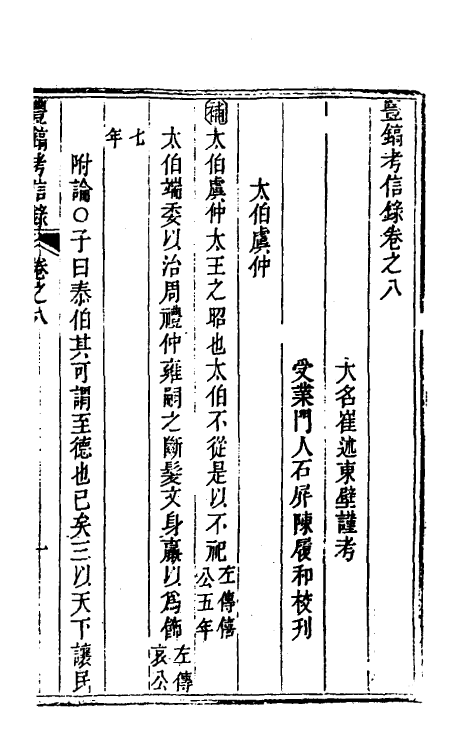 豐鎬考信錄卷之八
大名崔述東壁謹考
受業門人石屏陳履和校刊
太伯虞仲
補太伯虞仲太王之昭也太伯不從是以不祀左傳僖公五年
太伯端委以治周禮仲雍嗣之斷髮文身臝以爲飾左傳哀公
七年
附論○子曰泰伯其可謂至德也已矣三以天下讓民
豐鎬考信錄 卷之八 一